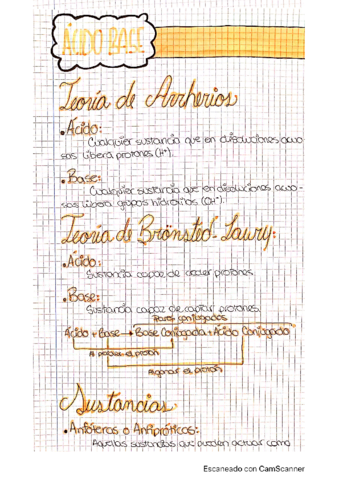 ÁCIDO BASE
Teoría de Arrherios
• Ácido:
Cualquier sustancia que en disoluciones acuo-
sas libera protones (H⁺).
• Base:
Cualquier sustancia que en disoluciones acuo-
sas libera grupos hidroxilos (OH⁻).
Teoría de Brönsted-Lawry:
• Ácido:
Sustancia capaz de ceder protones.
• Base:
Sustancia capaz de captar protones.
Pares conjugados
Ácido + Base → Base Conjugada + Ácido Conjugado
Al perder el protón
Al ganar el protón
Sustancias:
• Anfóteros o Anfipróticos:
Aquellas sustancias que pueden actuar como
Escaneado con CamScanner